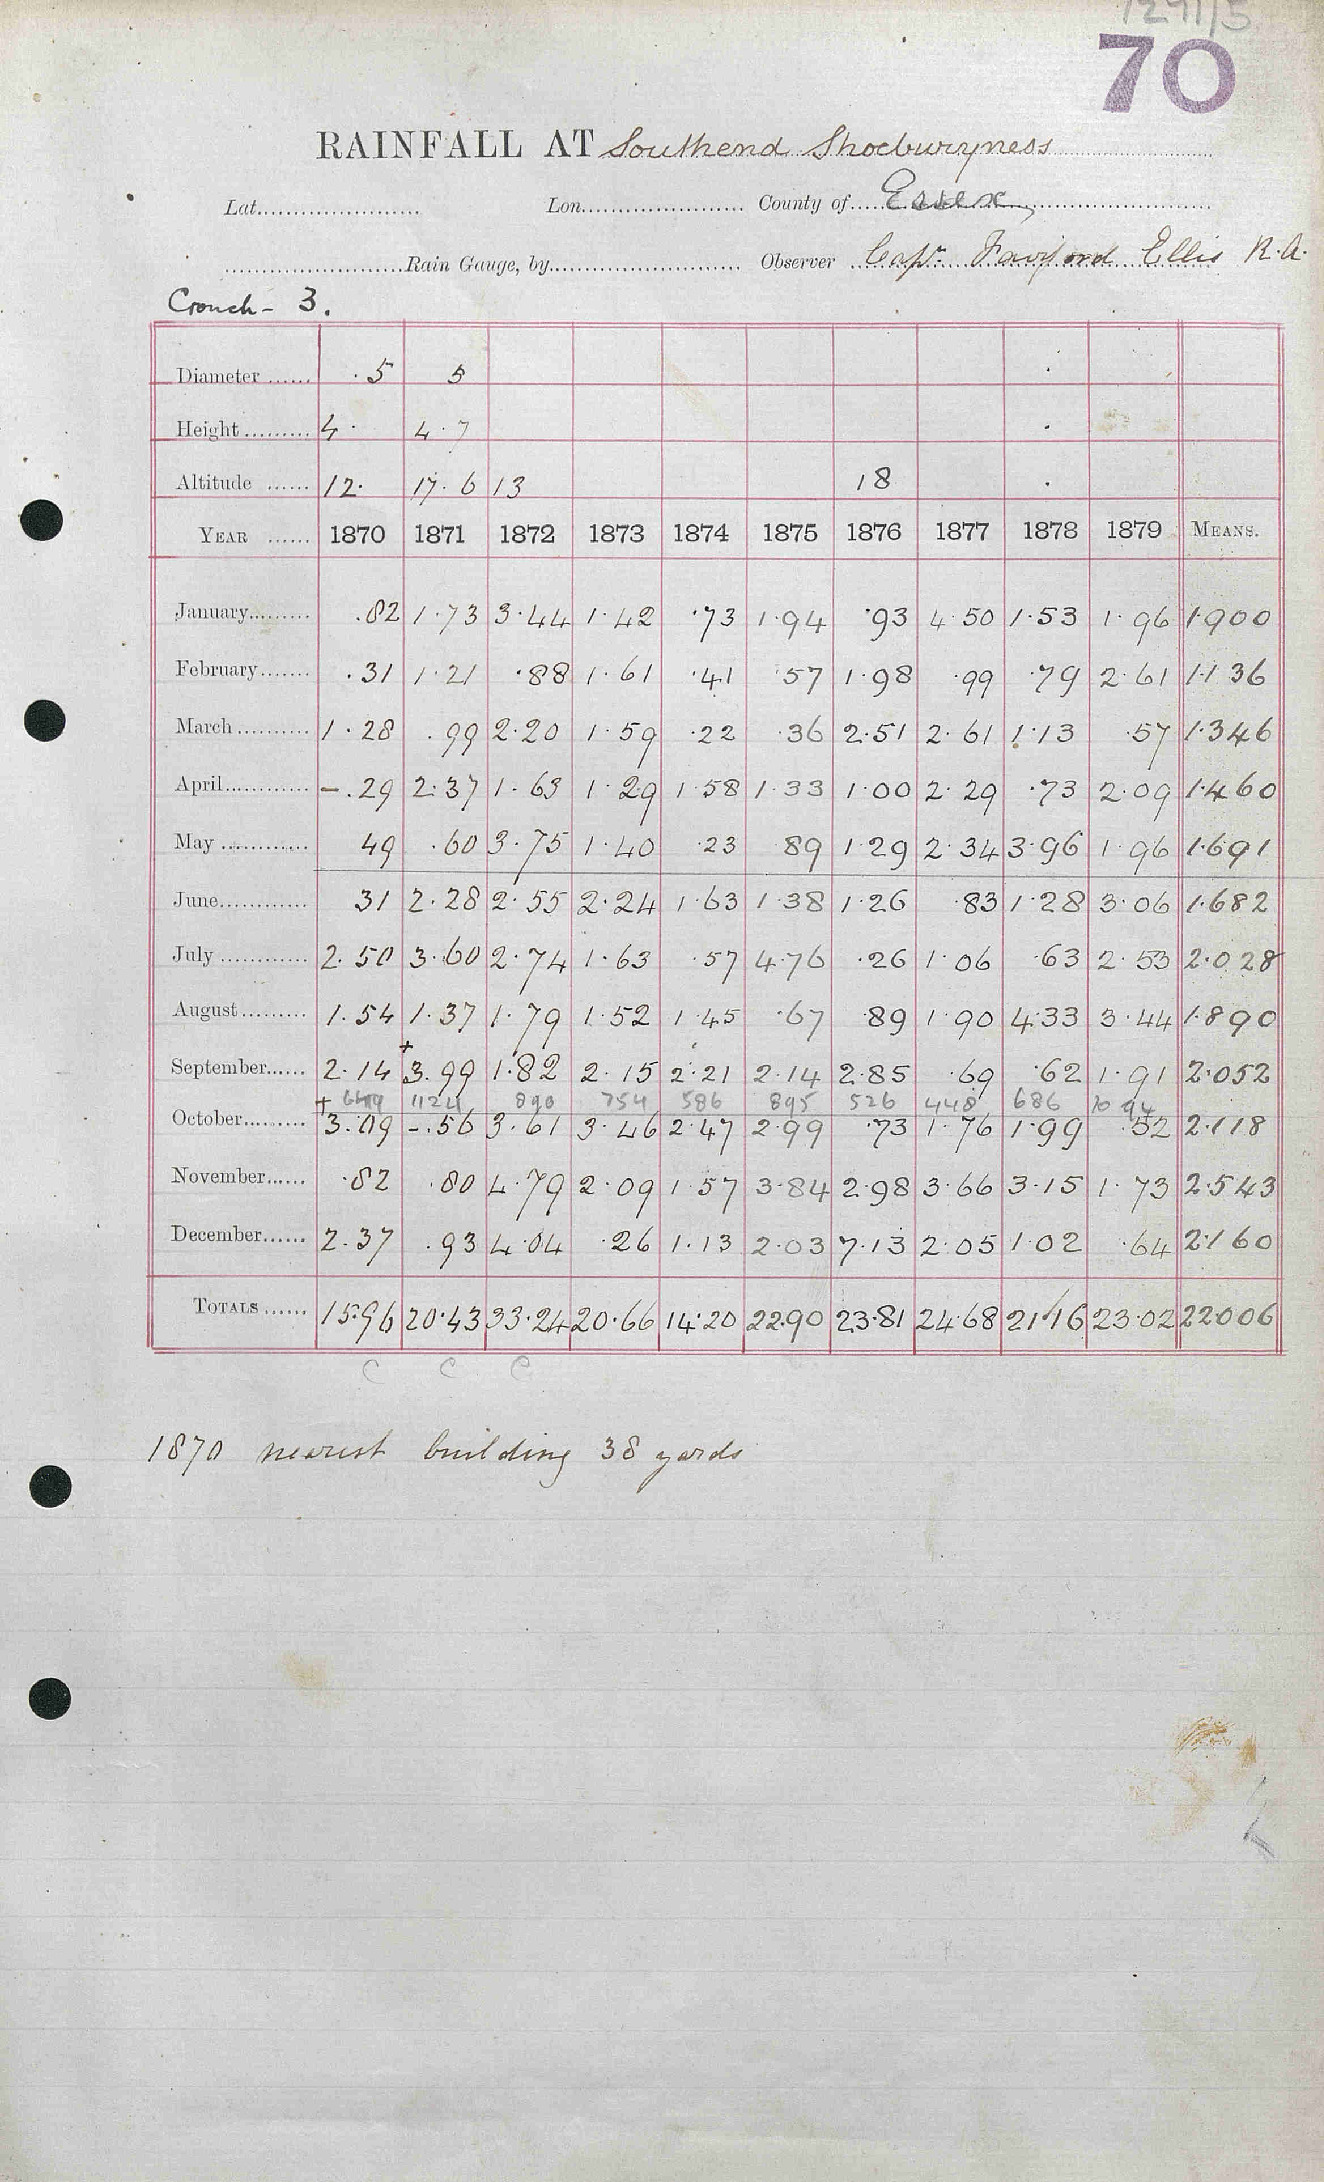 1291/5
70
RAINFALL AT Southend Shoeburyness
Lat...................... Lon...................... County of Essex
Rain Gauge, by...................... Observer Capt. Ellis R.A.
Crouch - 3.
Diameter ...... .5 5
Height ......... 4. 4.7
Altitude ...... 12. 17.6 13 18
YEAR ...... 1870 1871 1872 1873 1874 1875 1876 1877 1878 1879 MEANS.
January......... .82 1.73 3.44 1.42 .73 1.94 .93 4.50 1.53 1.96 1.900
February....... .31 1.21 .88 1.61 .41 .57 1.98 .99 .79 2.61 1.136
March .......... 1.28 .99 2.20 1.59 .22 .36 2.51 2.61 1.13 .57 1.346
April............ -.29 2.37 1.63 1.29 1.58 1.33 1.00 2.29 .73 2.09 1.460
May ............ 49 .60 3.75 1.40 .23 .89 1.29 2.34 3.96 1.96 1.691
June............ 31 2.28 2.55 2.24 1.63 1.38 1.26 .83 1.28 3.06 1.682
July ............ 2.50 3.60 2.74 1.63 .57 4.76 .26 1.06 .63 2.53 2.028
August......... 1.54 1.37 1.79 1.52 1.45 .67 .89 1.90 4.33 3.44 1.890
September...... 2.14 +3.99 1.82 2.15 2.21 2.14 2.85 .69 .62 1.91 2.052
649 1124 890 754 586 895 526 448 686 1094
October......... +3.09 -.56 3.61 3.46 2.47 2.99 .73 1.76 1.99 .52 2.118
November...... .82 .80 4.79 2.09 1.57 3.84 2.98 3.66 3.15 1.73 2.543
December...... 2.37 .93 4.04 .26 1.13 2.03 7.13 2.05 1.02 .64 2.160
TOTALS ...... 15.96 20.43 33.24 20.66 14.20 22.90 23.81 24.68 21.16 23.02 22.006
C C C
1870 nearest building 38 yards